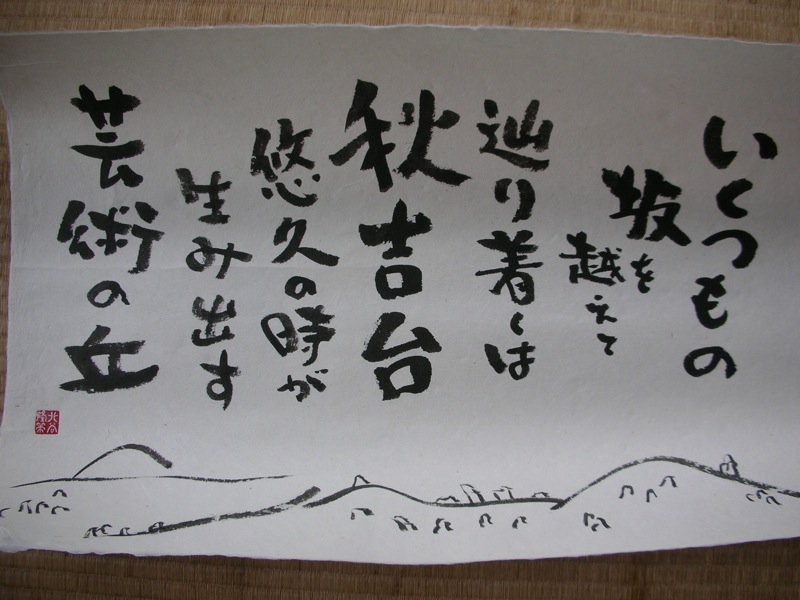 いくつもの
坂を
越えて
辿り着くは
秋吉台
悠久の時が
生み出す
芸術の丘